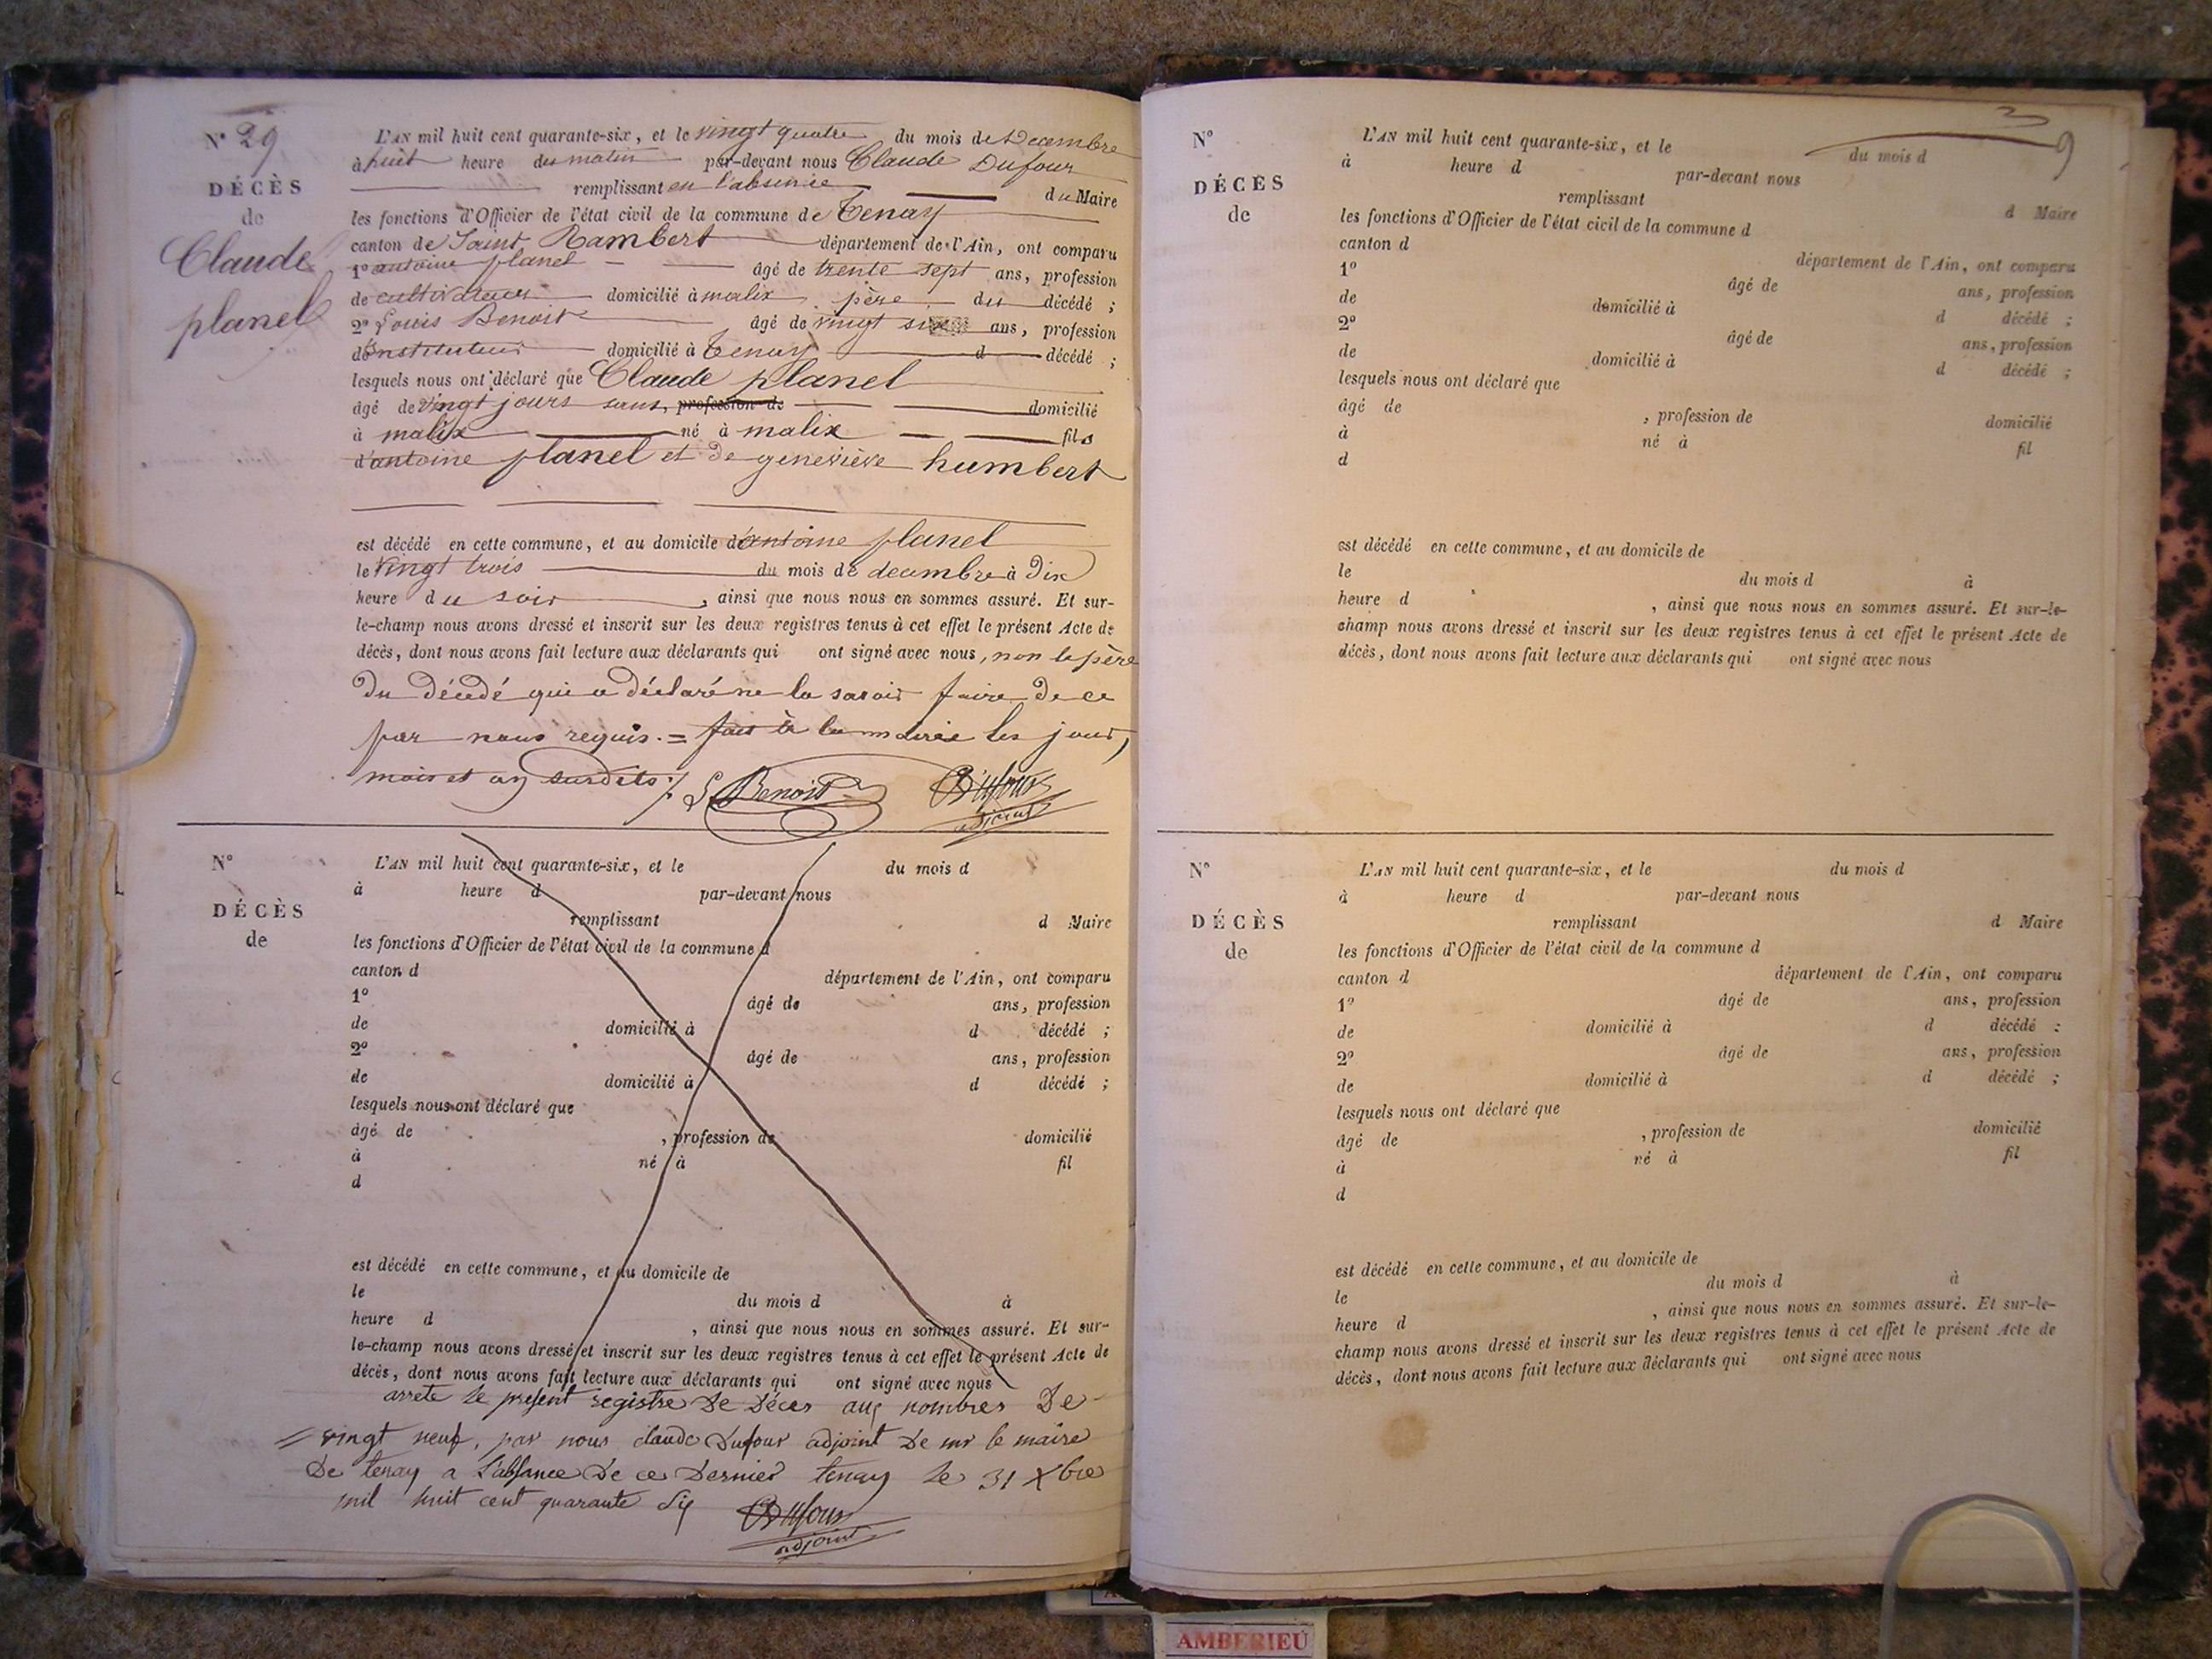 N° 29
DÉCÈS
de
Claude
planel
L'AN mil huit cent quarante-six, et le vingt quatre du mois de Decembre
à huit heure du matin par-devant nous Claude Dufour
remplissant en l'absence du Maire
les fonctions d'Officier de l'état civil de la commune de Tenay
canton de Saint Rambert département de l'Ain, ont comparu
1° antoine planel âgé de trente sept ans, profession
de cultivateur domicilié à malix père du décédé ;
2° Louis Benoit âgé de vingt six ans, profession
d'instituteur domicilié à Tenay d décédé ;
lesquels nous ont déclaré que Claude planel
âgé de vingt jours sans, profession de domicilié
à malix né à malix fils
d'antoine planel et de geneviève humbert
est décédé en cette commune, et au domicile d'antoine planel
le vingt trois du mois de decembre à dix
heure du soir, ainsi que nous nous en sommes assuré. Et sur-
le-champ nous avons dressé et inscrit sur les deux registres tenus à cet effet le présent Acte de
décès, dont nous avons fait lecture aux déclarants qui ont signé avec nous, non le père
du décédé qui a déclaré ne la savoir faire de ce
par nous requis. = fait à la mairie les jour,
mois et an susdits ./. L Benoit Dufour
adjoint
N°
DÉCÈS
de
L'AN mil huit cent quarante-six, et le du mois d
à heure d par-devant nous
remplissant d Maire
les fonctions d'Officier de l'état civil de la commune d
canton d département de l'Ain, ont comparu
1° âgé de ans, profession
de domicilié à d décédé ;
2° âgé de ans, profession
de domicilié à d décédé ;
lesquels nous ont déclaré que
âgé de , profession de domicilié
à né à fil
d
est décédé en cette commune, et au domicile de
le du mois d à
heure d , ainsi que nous nous en sommes assuré. Et sur-
le-champ nous avons dressé et inscrit sur les deux registres tenus à cet effet le présent Acte de
décès, dont nous avons fait lecture aux déclarants qui ont signé avec nous
arrete le present registre de déces aux nombres de
vingt neuf, par nous claude Dufour adjoint de mr le maire
de tenay a l'absance de ce dernier tenay le 31 Xbre
mil huit cent quarante six Dufour
adjoint
N°
DÉCÈS
de
L'AN mil huit cent quarante-six, et le du mois d
à heure d par-devant nous
remplissant d Maire
les fonctions d'Officier de l'état civil de la commune d
canton d département de l'Ain, ont comparu
1° âgé de ans, profession
de domicilié à d décédé ;
2° âgé de ans, profession
de domicilié à d décédé ;
lesquels nous ont déclaré que
âgé de , profession de domicilié
à né à fil
d
est décédé en cette commune, et au domicile de
le du mois d à
heure d , ainsi que nous nous en sommes assuré. Et sur-le-
champ nous avons dressé et inscrit sur les deux registres tenus à cet effet le présent Acte de
décès, dont nous avons fait lecture aux déclarants qui ont signé avec nous
N°
DÉCÈS
de
L'AN mil huit cent quarante-six, et le du mois d
à heure d par-devant nous
remplissant d Maire
les fonctions d'Officier de l'état civil de la commune d
canton d département de l'Ain, ont comparu
1° âgé de ans, profession
de domicilié à d décédé :
2° âgé de ans, profession
de domicilié à d décédé ;
lesquels nous ont déclaré que
âgé de , profession de domicilié
à né à fil
d
est décédé en cette commune, et au domicile de
le du mois d à
heure d , ainsi que nous nous en sommes assuré. Et sur-le-
champ nous avons dressé et inscrit sur les deux registres tenus à cet effet le présent Acte de
décès, dont nous avons fait lecture aux déclarants qui ont signé avec nous
AMBERIEU